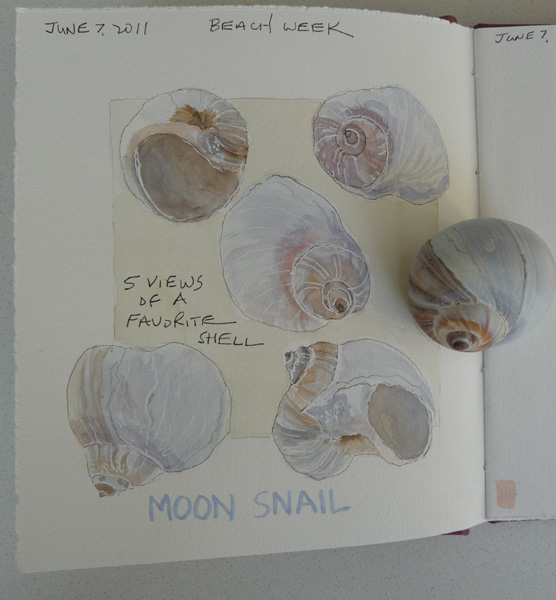 JUNE 7, 2011 BEACH WEEK
JUNE 7,
5 VIEWS
OF A
FAVORITE
SHELL
MOON SNAIL